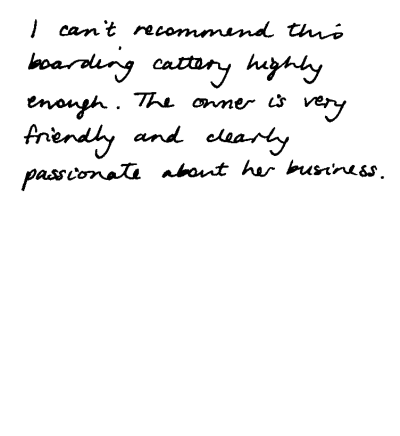 I can't recommend this
boarding cattery highly
enough. The owner is very
friendly and clearly
passionate about her business.